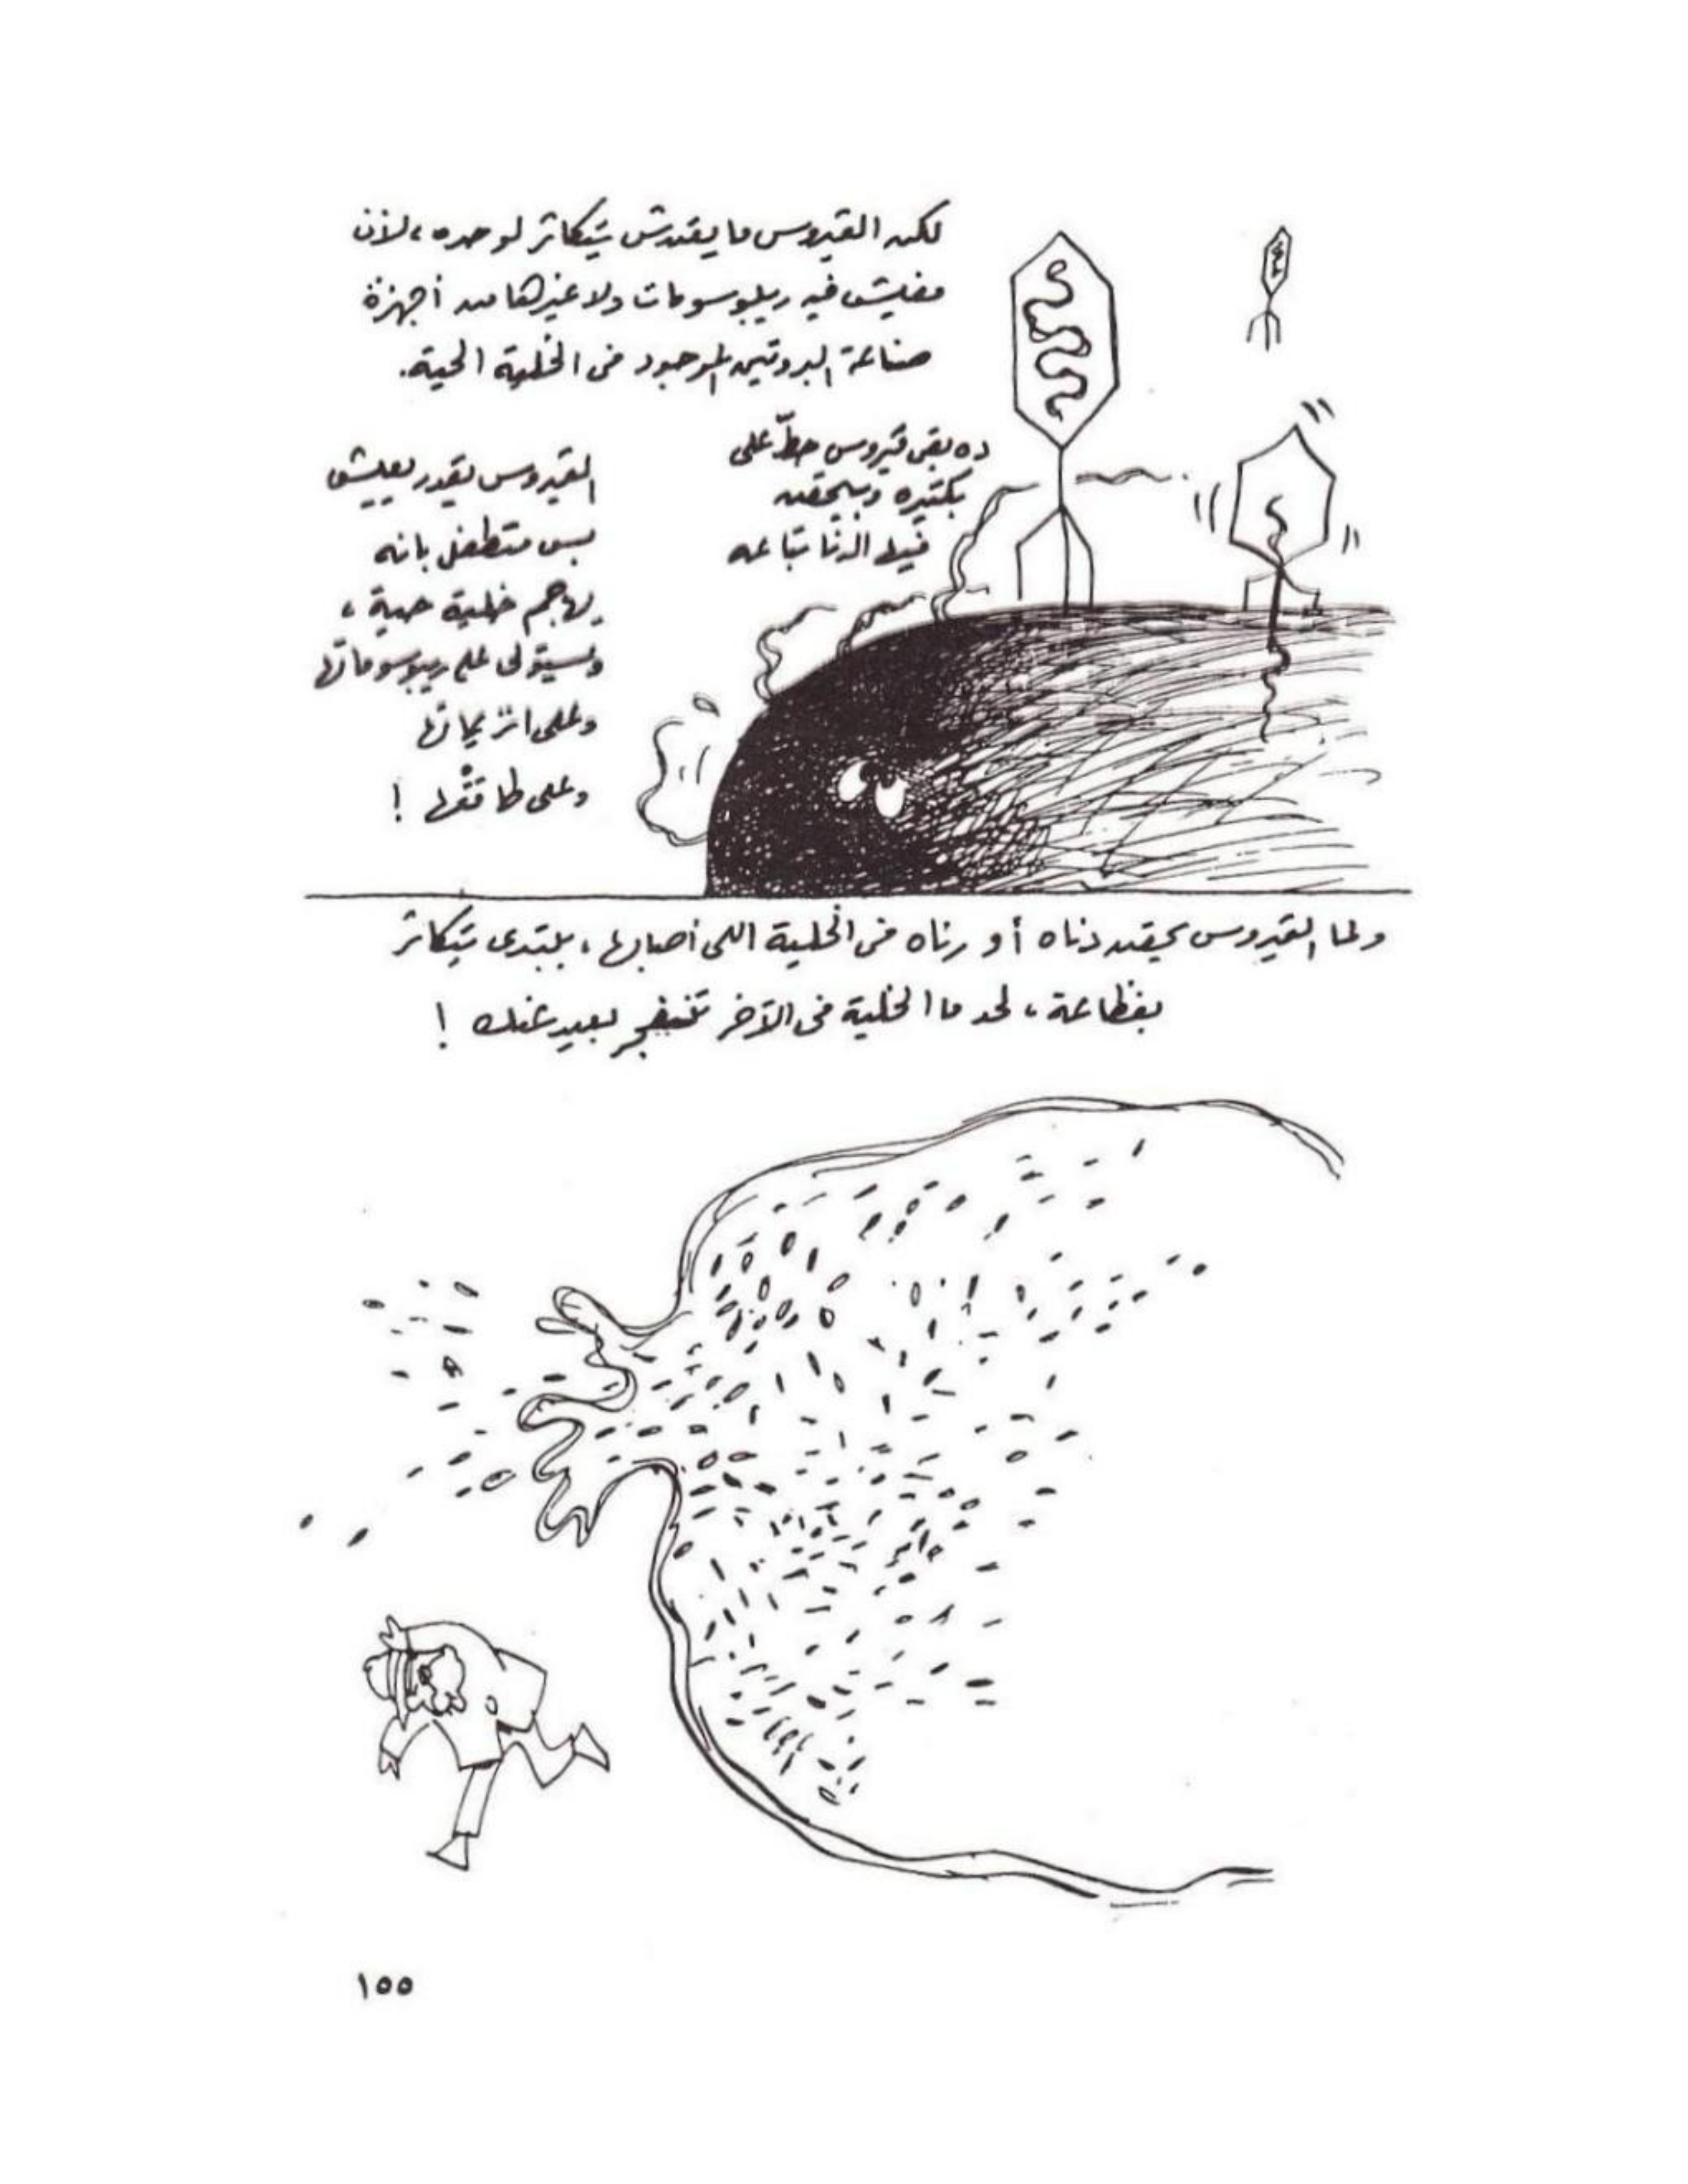 لكن الڤيروس ما يقدرش يتكاثر لوحده، لأن
مفيش فيه ريبوسومات ولا غيرها من أجهزة
صناعة البروتين الموجود فى الخلية الحية.
ده بقى ڤيروس حطّ على
بكتيره وبيحقن
خيط الدنا بتاعه
الڤيروس يقدر يعيش
بس متطفل بانه
يهاجم خلية حية،
ويستولى على ريبوسوماتها
وعلى انزيماتها
وعلى طاقتها !
ولما الڤيروس يحقن دناه أو رناه فى الخلية اللى أصابها، بيبتدى يتكاثر
بفظاعة، لحد ما الخلية فى الآخر تنفجر بعيد عنك !
١٥٥